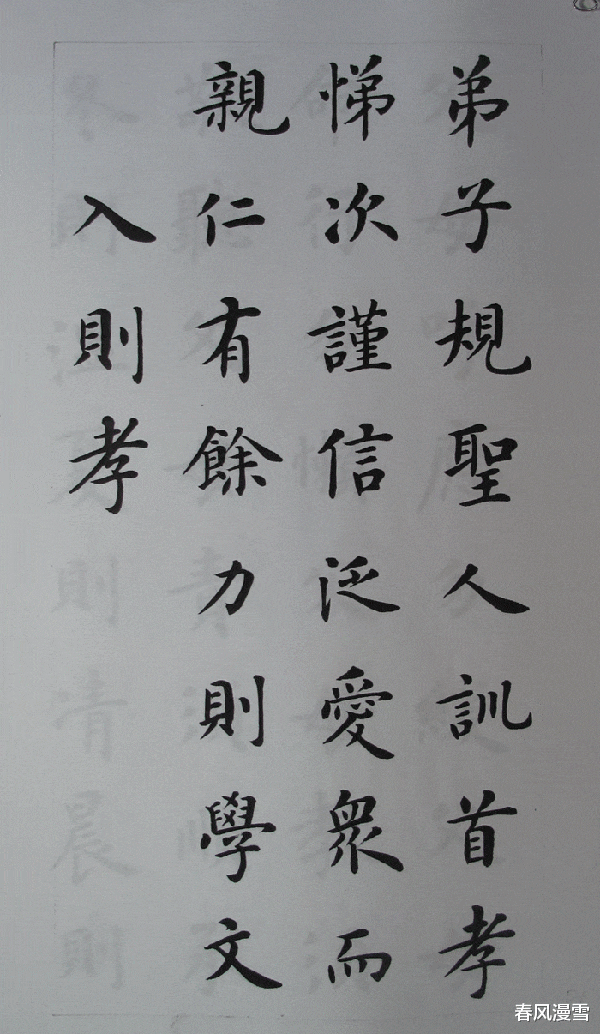 弟子規聖人訓首孝
悌次謹信泛愛衆而
親仁有餘力則學文
入則孝
春风漫雪